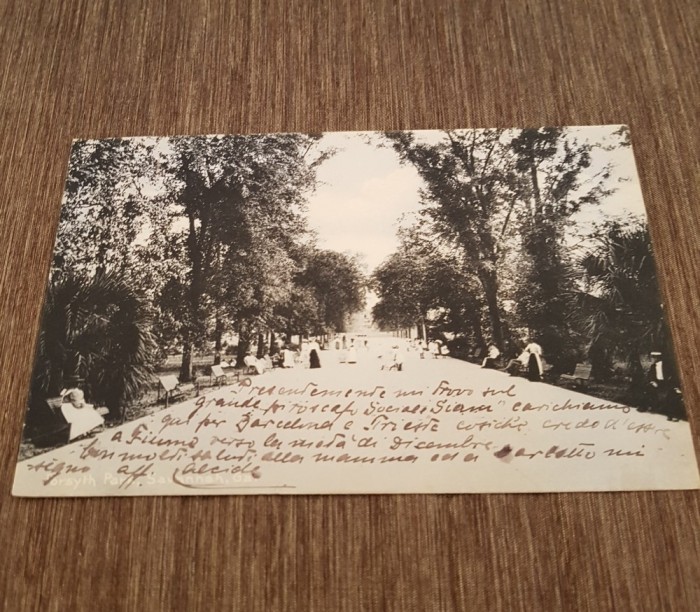 Presentemente mi trovo sul
grande piroscafo Sociale Giam" carichiamo
qui per Barcelona e Trieste cosichè credo d'essere
a Fiume verso la metà di Dicembre
Con molti saluti alla mamma ed a mi
segno aff. Alcide
Forsyth Park, Savannah, Ga.